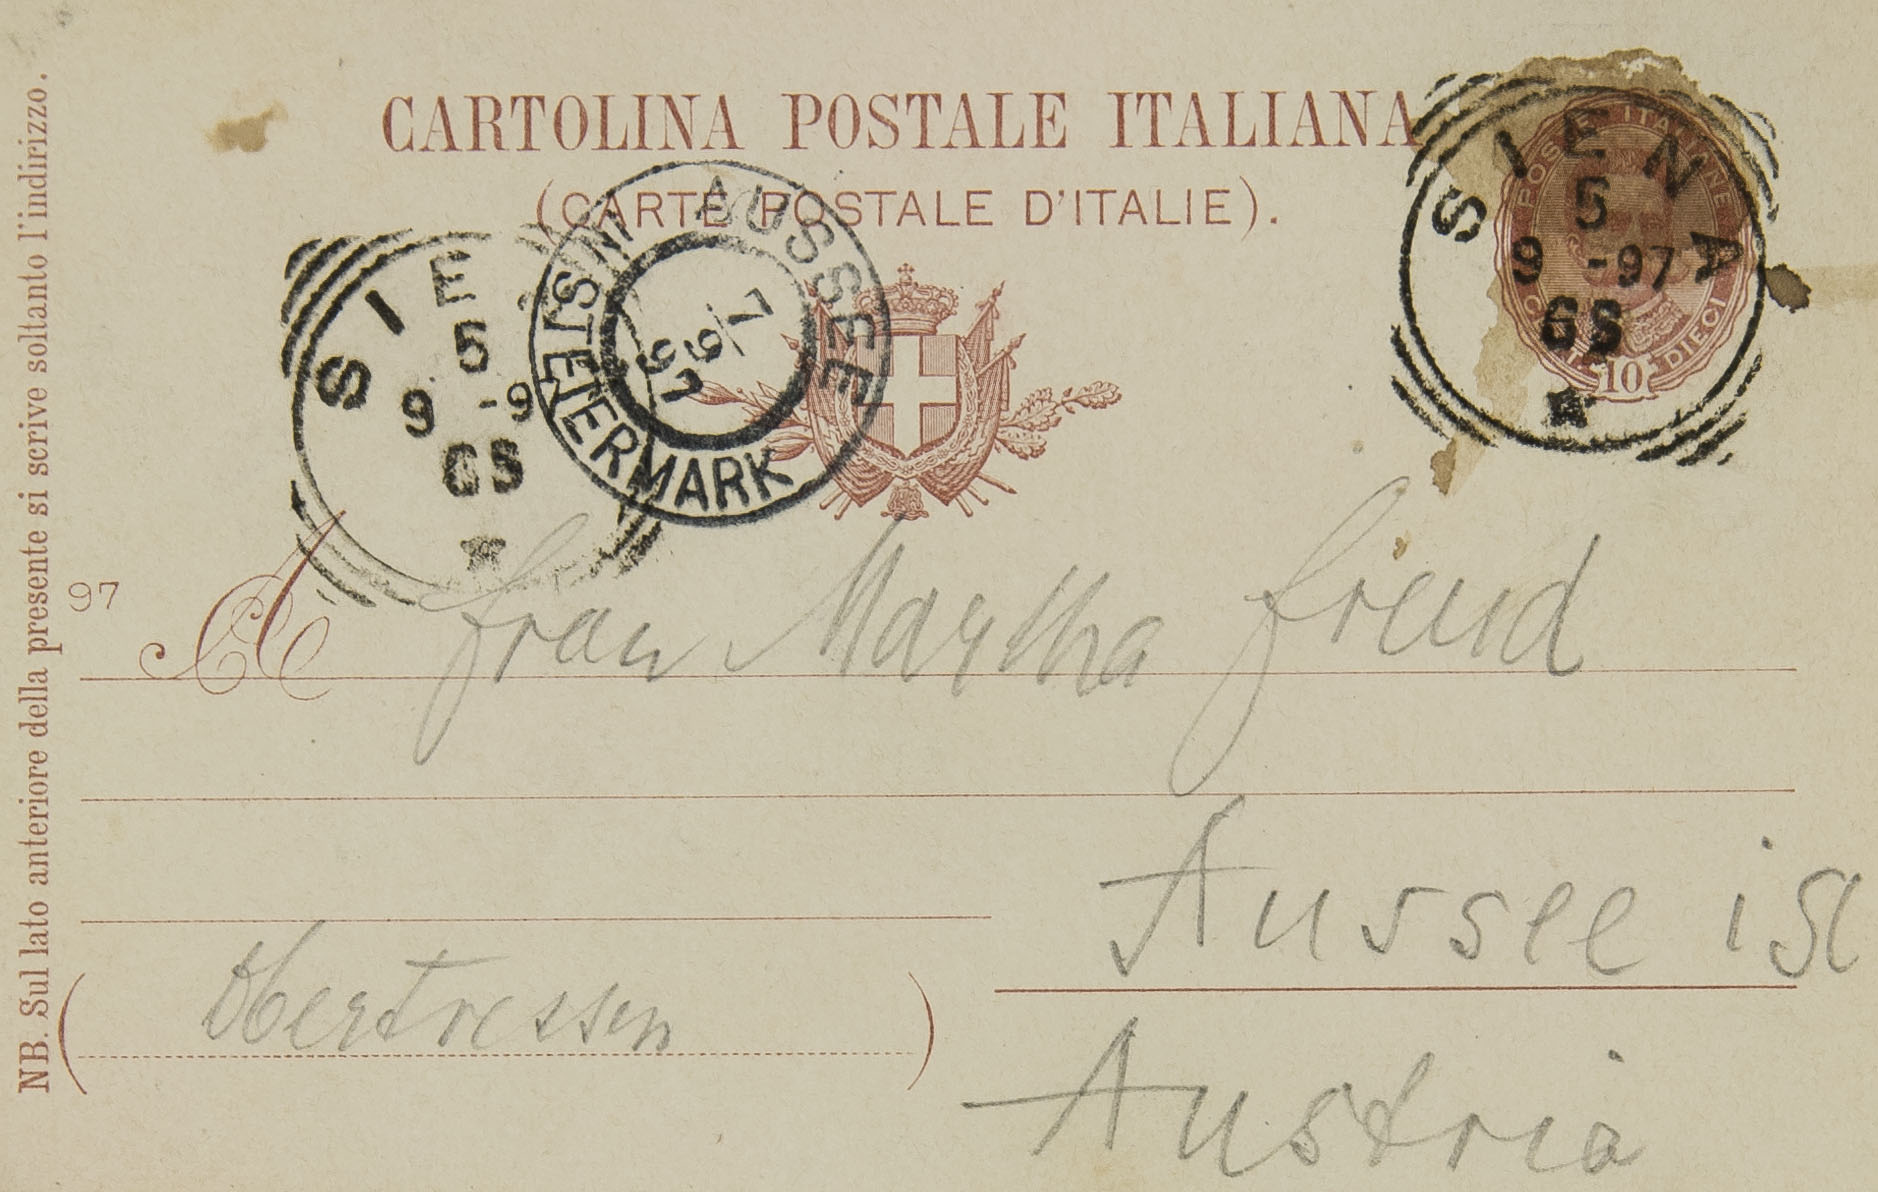 CARTOLINA POSTALE ITALIANA
(CARTE POSTALE D'ITALIE).
SIENA
5
9 -97
6S
POSTE ITALIANE
DIECI
10
SIE
5
9 -9
6S
AUSSEE
IN STEIERMARK
7
9
97
97
A Frau Martha Freud
Aussee i St
(Obertressen)
Austria
NB. Sul lato anteriore della presente si scrive soltanto l'indirizzo.